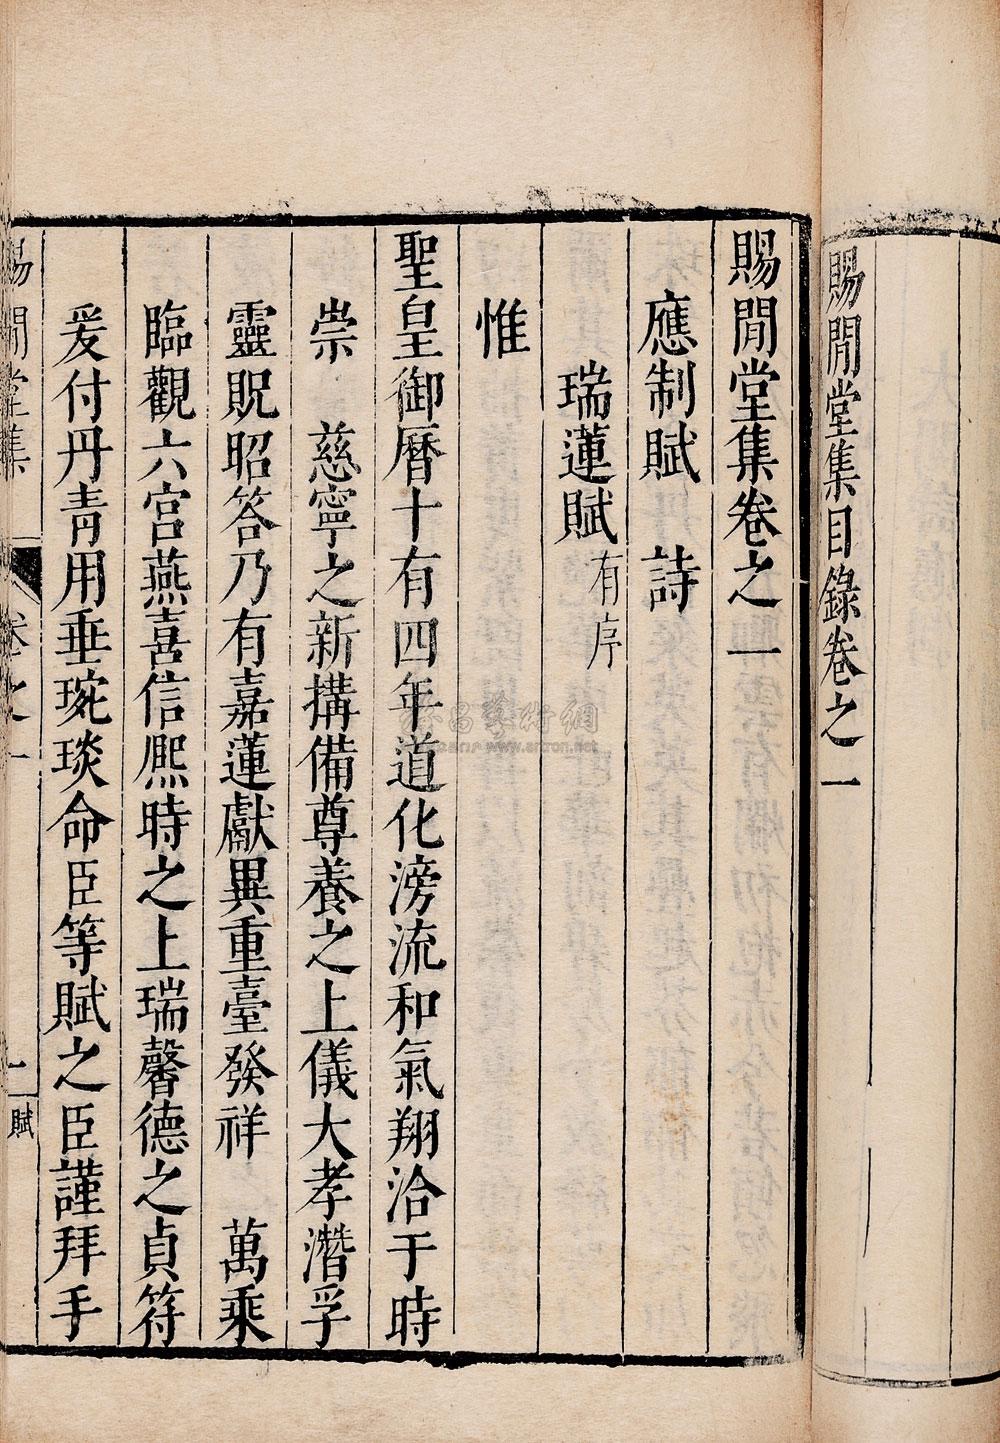 賜閒堂集目錄卷之一
賜閒堂集卷之一
應制賦 詩
瑞蓮賦有序
惟
聖皇御曆十有四年道化滂流和氣翔洽于時
崇 慈寧之新搆備尊養之上儀大孝潛孚
靈貺昭答乃有嘉蓮獻異重臺發祥 萬乘
臨觀六宮燕喜信熈時之上瑞馨德之貞符
爰付丹青用垂琬琰命臣等賦之臣謹拜手
賜閒堂集 卷之一 一 賦